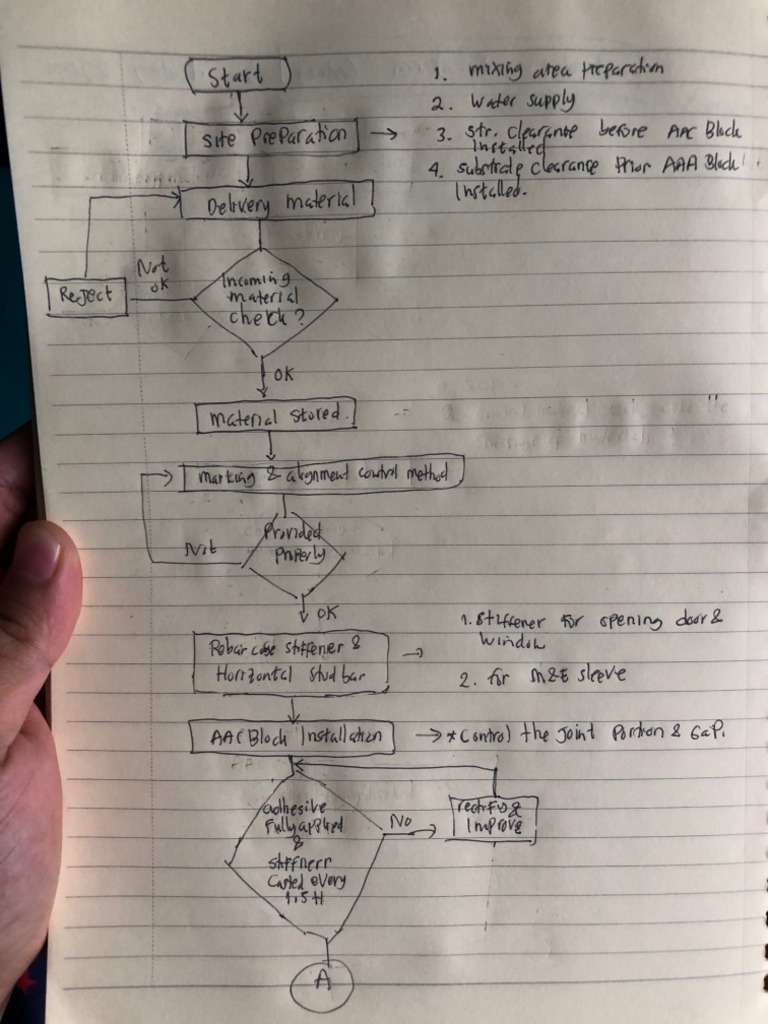 Start
1. mixing area Preparation
2. Water supply
Site Preparation
3. Str. Clearance before AAC Block
Installed
4. substrate clearance Prior AAA Block
Installed.
Delivery material
Not
OK
Reject
Incoming
material
check?
OK
Material stored.
Marking & alignment control method
Provided
Properly
Not
OK
Rebar case stiffener &
Horizontal stud bar
1. Stiffener for opening door &
window
2. for M&E sleeve
AAC Block Installation
* Control the Joint Portion & GaP.
adhesive
Fully applied
&
stiffnerr
Casted every
1.5H
No
rectify &
Improve
A